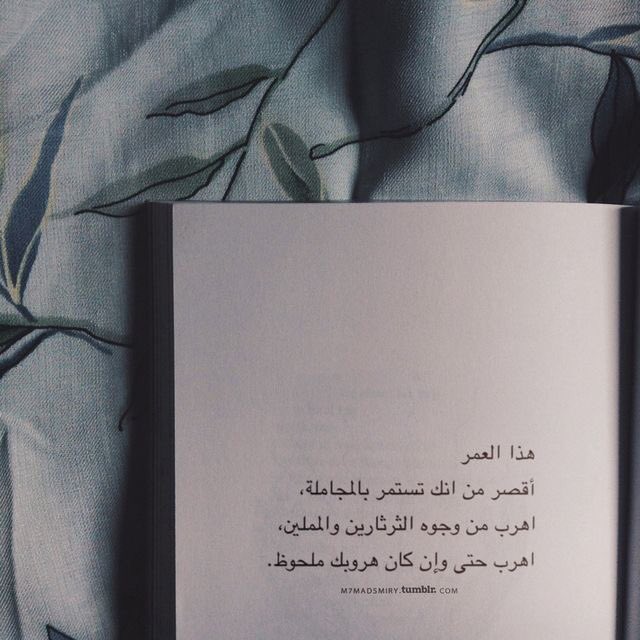 هذا العمر
أقصر من انك تستمر بالمجاملة،
اهرب من وجوه الثرثارين والمملين،
اهرب حتى وإن كان هروبك ملحوظ.
M7MADSMIRY.tumblr. COM